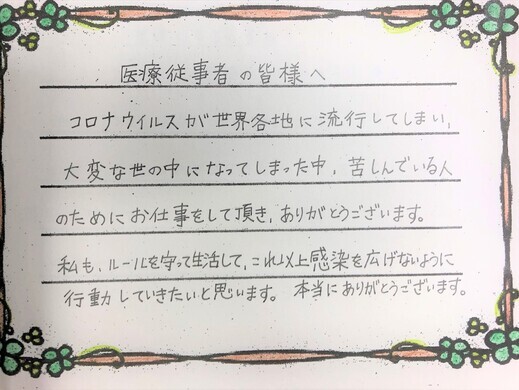 医療従事者の皆様へ
コロナウイルスが世界各地に流行してしまい,
大変な世の中になってしまった中,苦しんでいる人
のためにお仕事をして頂き,ありがとうございます。
私も,ルールを守って生活して,これ以上感染を広げないように
行動していきたいと思います。 本当にありがとうございます。